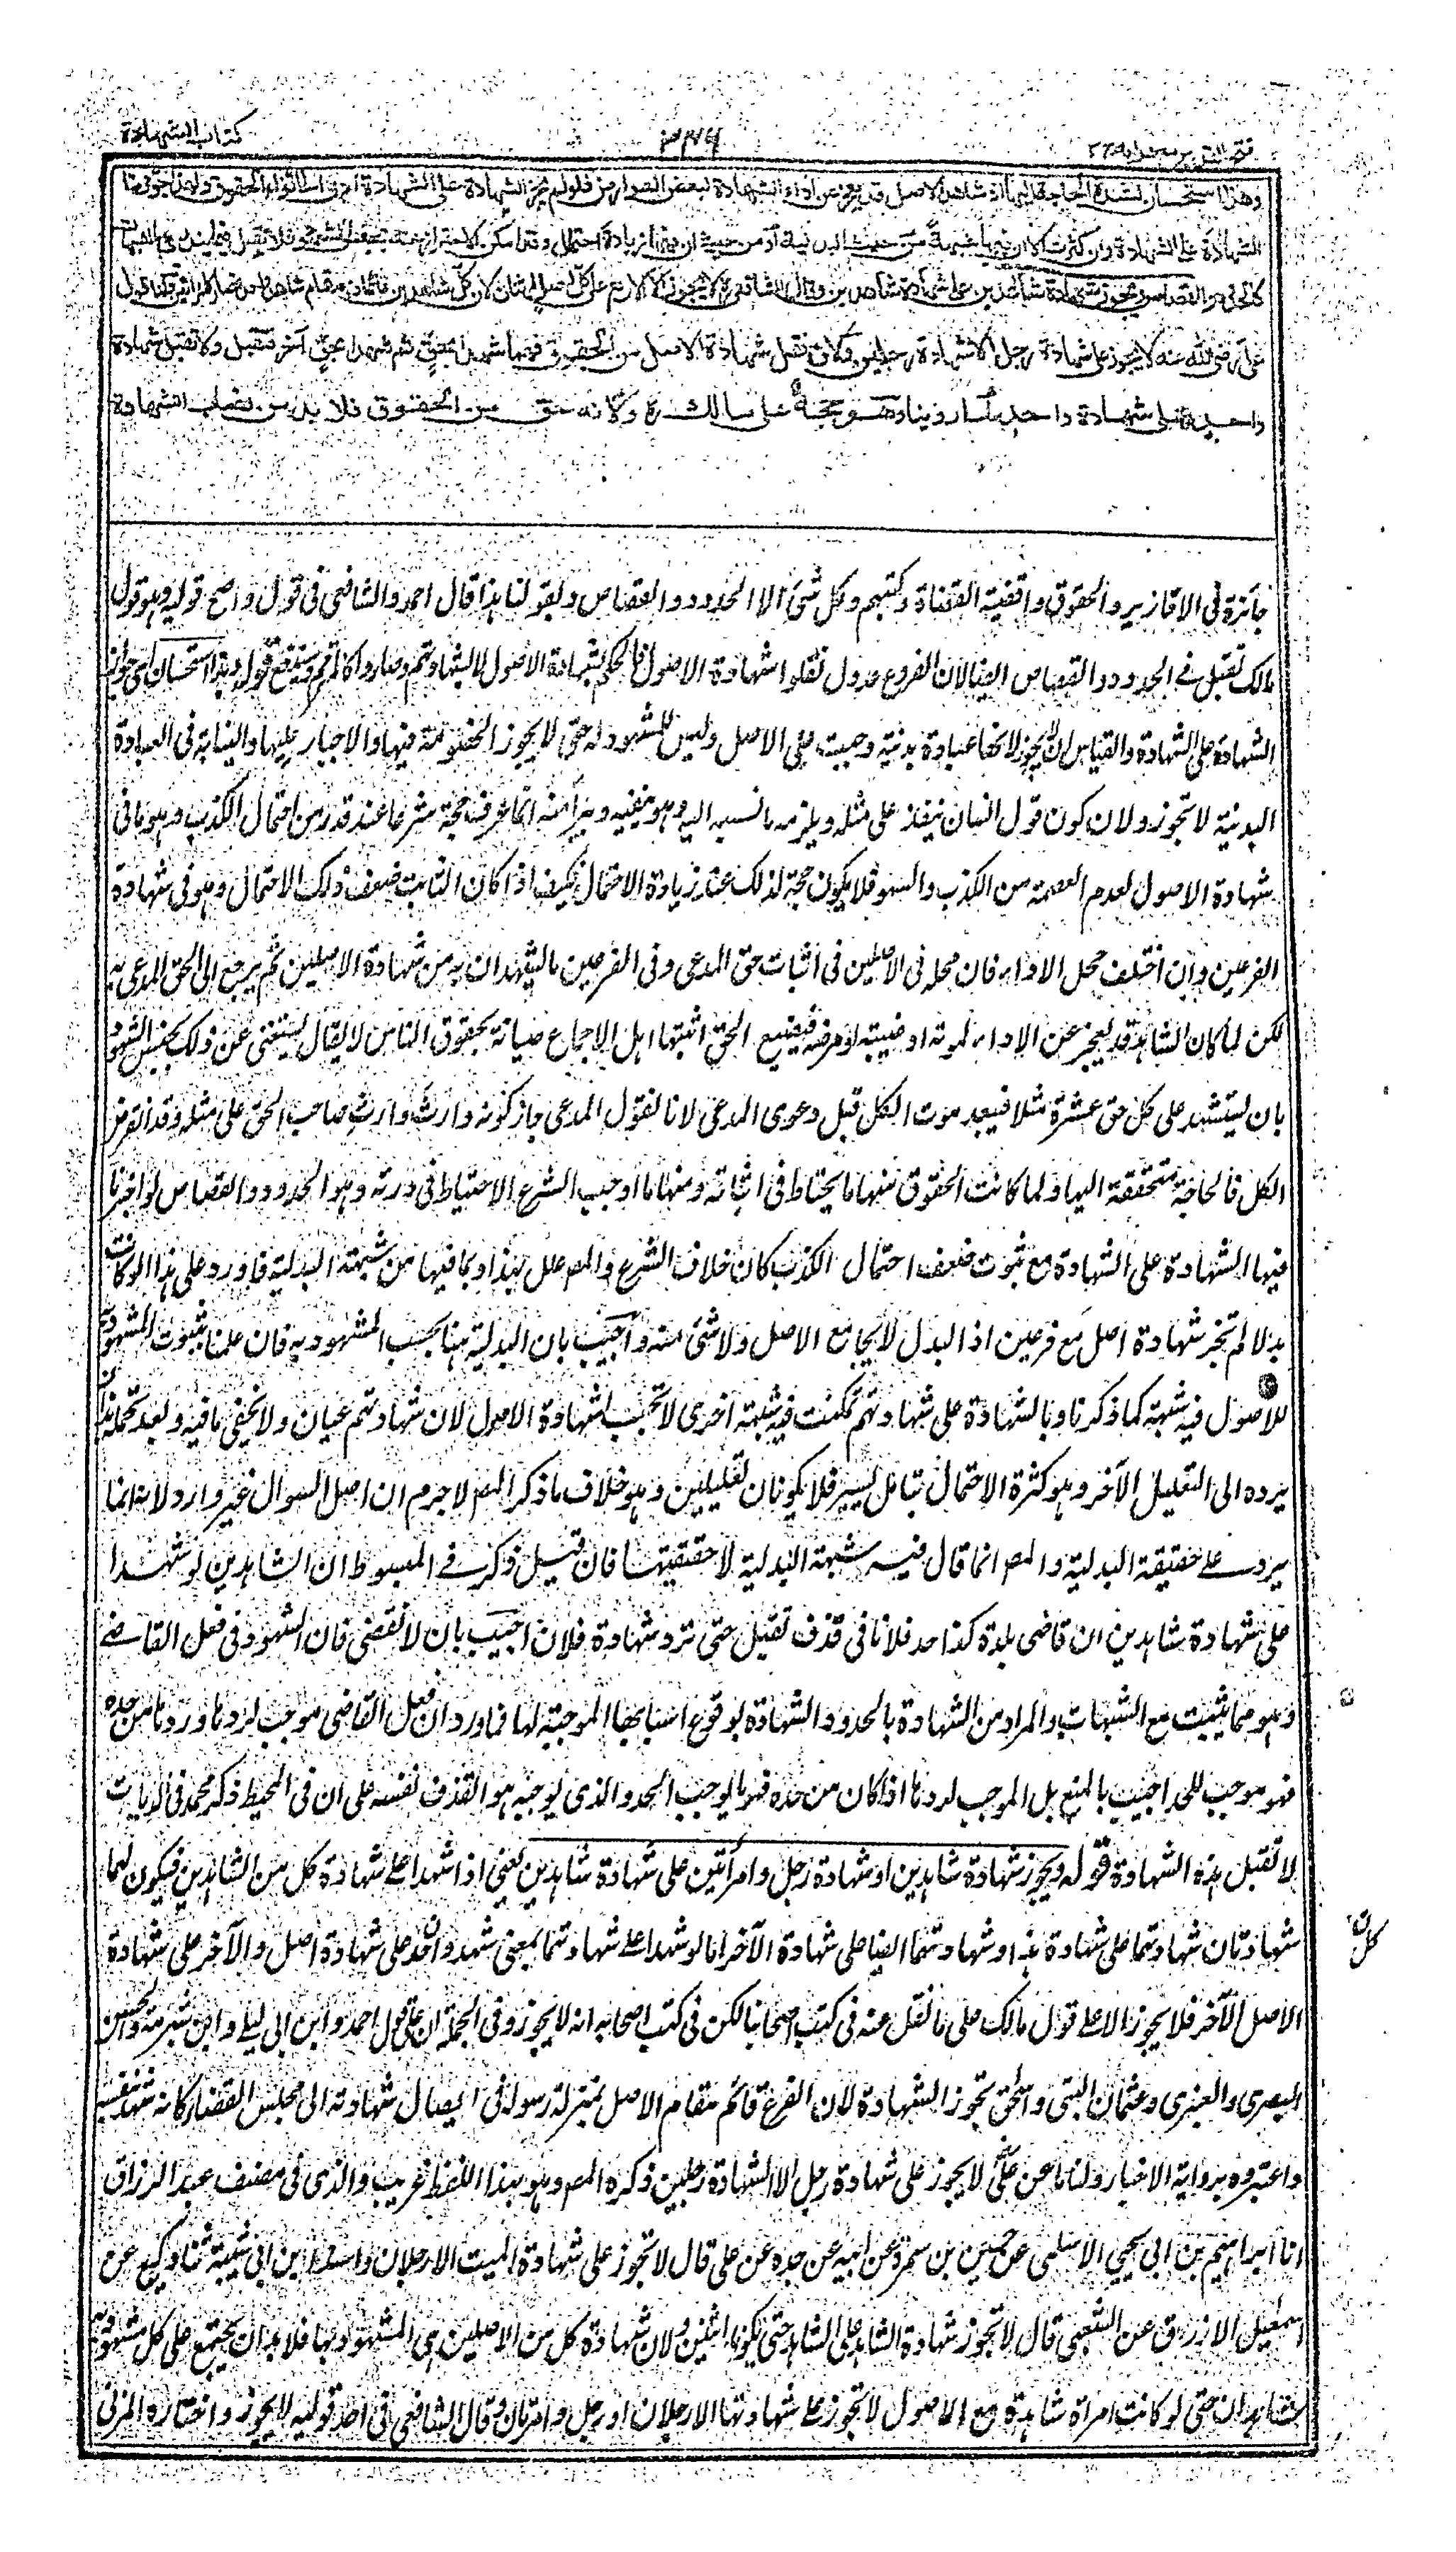 كتاب الشهادة
٣٧٦
فتح القدير مع هداية ج٣
وهذا استحسان لشدة الحاجة اليها اذ شاهد الاصل قد يعجز عن اداء الشهادة لبعض العوارض فلو لم يجز الشهادة على الشهادة ادى الى اتواء الحقوق ولهذا جوزنا
الشهادة على الشهادة وان كثرت الا ان فيها شبهة من حيث البدلية او من حيث ان فيها زيادة احتمال وقد امكن الاحتراز عنه بجنس الشهود فلا تقبل فيما يندرئ بالشبهات
كالحدود والقصاص ويجوز شهادة شاهدين على شهادة شاهدين وقال الشافعي لا يجوز الا الاربع على كل اصل اثنان لان كل شاهدين قائمان مقام شاهد واحد فصارا كالمرأتين ولنا قول
علي رضي الله عنه لا يجوز على شهادة رجل الا شهادة رجلين ولان نقل شهادة الاصل من الحقوق فهما شهدا بحق ثم شهدا بحق آخر فتقبل ولا تقبل شهادة
واحد على شهادة واحد لما روينا وهو حجة على مالك ره ولانه حق من الحقوق فلا بد من نصاب الشهادة
جائزة في الاقارير والحقوق واقضية القضاة وكتبهم وكل شئ الا الحدود والقصاص وبقولنا هذا قال احمد والشافعي في قول واصح قوليه وهو قول
مالك تقبل في الحدود والقصاص ايضا لان الفروع عدول نقلوا شهادة الاصول فالحكم بشهادة الاصول لا بشهادتهم وصاروا كالمترجم وسندفع قوله وهذا استحسان اى جواز
الشهادة على الشهادة والقياس ان لا يجوز لانها عبادة بدنية وجبت على الاصل وليس للمشهود له حتى لا يجوز الخصومة فيها والاجبار عليها والنيابة في العبادة
البدنية لا تجوز ولان كون قول انسان ينفذ على مثله ويلزمه ما نسبه اليه وهو ينفيه ويبرأ منه انما عرفناه حجة شرعا عند قدر من احتمال الكذب وهو ما في
شهادة الاصول لعدم العصمة من الكذب والسهو فلا يكون حجة لذلك عند زيادة الاحتمال فكيف اذا كان الثابت ضعف ذلك الاحتمال وهو في شهادة
الفرعين وان اختلف محل الاداء فان محله في الاصلين في اثبات حق المدعى وفي الفرعين ما يشهدان به من شهادة الاصلين ثم يرجع الى الحق المدعى به
لكن لما كان الشاهد قد يعجز عن الاداء لموته او غيبته او مرضه فيضيع الحق اثبتها اهل الاجماع صيانة لحقوق الناس لا يقال يستغنى عن ذلك بجنس الشهود
بان يستشهد على كل حق عشرة مثلا فيبعد موت الكل قبل دعوى المدعى لانا نقول المدعى جاز كونه وارث وارث صاحب الحق على مثله وقد انقرض
الكل فالحاجة متحققة اليها ولما كانت الحقوق منها ما يحتاط في اثباته ومنها ما اوجب الشرع الاحتياط في درئه وهو الحدود والقصاص لو اجزنا
فيها الشهادة على الشهادة مع ثبوت ضعف احتمال الكذب كان خلاف الشرع والمص علل بهذا وبما فيها من شبهة البدلية فاورد على هذا لو كانت
بدلا لم تجز شهادة اصل مع فرعين اذ البدل لا يجامع الاصل ولا شئ منه واجيب بان البدلية هنا بحسب المشهود به فان علمنا بثبوت المشهود به
للاصول فيه شبهة كما ذكرنا وبالشهادة على شهادتهم تمكنت فيه شبهة اخرى لا تجب بشهادة الاصول لان شهادتهم عيان ولا يخفى ما فيه وبعد تحمله فان
يرده الى التعليل الآخر وهو كثرة الاحتمال بتامل يسير فلا يكونان تعليلين وهو خلاف ما ذكر المص لا جرم ان اصل السوال غير وارد لانه انما
يرد على حقيقة البدلية والمص انما قال فيه شبهة البدلية لا حقيقتها فان قيل ذكر في المبسوط ان الشاهدين لو شهدا
على شهادة شاهدين ان قاضى بلدة كذا حد فلانا في قذف تقبل حتى ترد شهادة فلان اجيب بان لا نقض فان الشهود فى فعل القاضى
وهو مما يثبت مع الشبهات والمراد من الشهادة بالحدود الشهادة بوقوع اسبابها الموجبة لها فما ورد ان فعل القاضى موجب لرد ما ورد ناه من حده
فهو موجب للحد اجيب بالمنع بل الموجب لردها اذا كان من حده فهو ما يوجب الحد والذى يوجبه هو القذف نفسه على ان فى المحيط ذكر محمد فى الديات
لا تقبل هذه الشهادة قوله ويجوز شهادة شاهدين او شهادة رجل وامرأتين على شهادة شاهدين يعنى اذا شهدا على شهادة كل من الشاهدين فيكون لهما
شهادتان شهادتهما على شهادة هذا وشهادتهما ايضا على شهادة الآخر اما لو شهدا على شهادتهما بمعنى شهد واحد على شهادة اصل والآخر على شهادة
كل
الاصل الآخر فلا يجوز الا على قول مالك على ما نقل عنه فى كتب اصحابنا لكن فى كتب اصحابه انه لا يجوز وفى الجملة ان على قول احمد وابن ابى ليلى وابن شبرمة والحسن
البصرى والعنبرى وعثمان البتى واسحق تجوز الشهادة لان الفرع قائم مقام الاصل بمنزلة رسوله فى ايصال شهادته الى مجلس القضاء فكانه شهد بنفسه
واعتبروه برواية الاخبار ولنا ما عن على لا يجوز على شهادة رجل الا شهادة رجلين ذكره المص وهو بهذا اللفظ غريب والذى فى مصنف عبد الرزاق
انا ابراهيم بن ابى يحيى الاسلمى عن حسين بن ضمرة عن ابيه عن جده عن على قال لا تجوز على شهادة الميت الا رجلان واسند ابن ابى شيبة ثنا وكيع عن
اسمعيل الازرق عن الشعبى قال لا تجوز شهادة الشاهد على الشاهد حتى يكونا اثنين ولان شهادة كل من الاصلين هى المشهود بها فلا بد ان يجتمع على كل مشهود به
شاهدان حتى لو كانت امرأة شاهدة مع الاصول لا تجوز على شهادتها الا رجلان او رجل وامرأتان وقال الشافعى فى احد قوليه لا يجوز واختاره المزنى